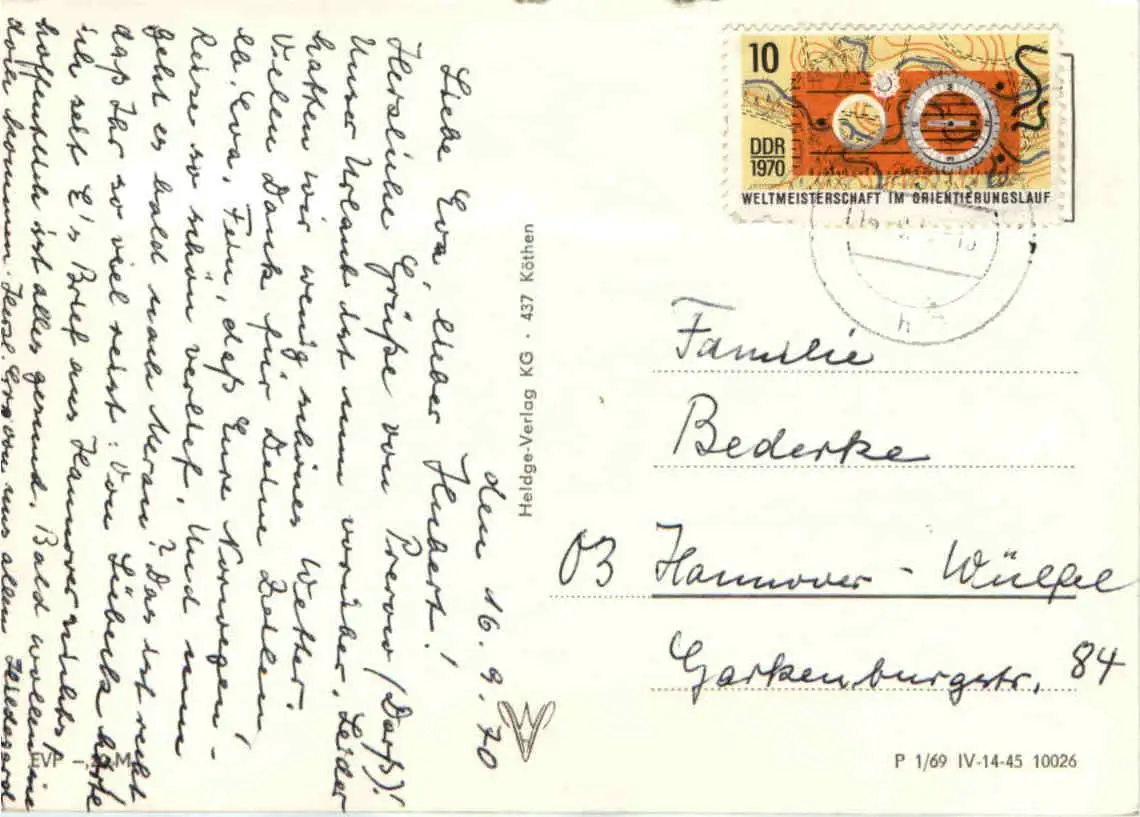 den 16.9.70
Liebe Eva, lieber Hubert!
Herzliche Grüße von Prerow (Darß)!
Unser Urlaub ist nun vorüber. Leider
hatten wir wenig schönes Wetter.
Vielen Dank für Deine Zeilen
lb. Eva. Fein, daß Eure Norwegen-
Reise so schön verlief. Und nun
geht es bald nach Meran? Das ist recht
daß Ihr so viel reist! Von Lübeck hörte
ich seit E's Brief aus Hannover nichts,
hoffentlich ist alles gesund. Bald wollen sie
doch kommen. Herzl. von uns allen
Hildegard
Heldge-Verlag KG · 437 Köthen
10
DDR
1970
WELTMEISTERSCHAFT IM ORIENTIERUNGSLAUF
Familie
Bederke
03 Hannover - Wülfel
Garkenburgstr. 84
EVP
M
P 1/69 IV-14-45 10026